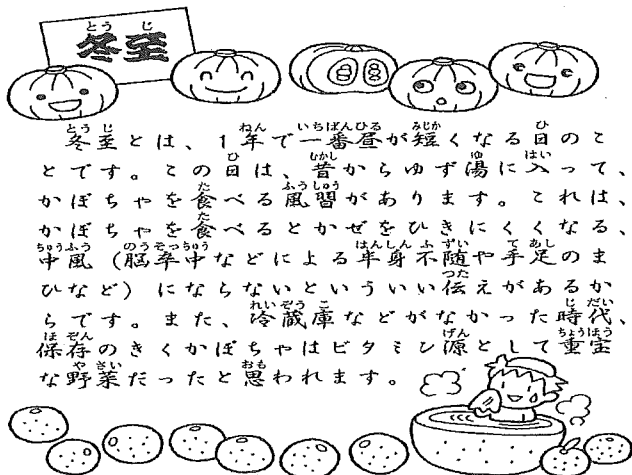 冬至
冬至とは、1年で一番昼が短くなる日のこ
とです。この日は、昔からゆず湯に入って、
かぼちゃを食べる風習があります。これは、
かぼちゃを食べるとかぜをひきにくくなる、
中風（脳卒中などによる半身不随や手足のま
ひなど）にならないといういい伝えがあるか
らです。また、冷蔵庫などがなかった時代、
保存のきくかぼちゃはビタミン源として重宝
な野菜だったと思われます。